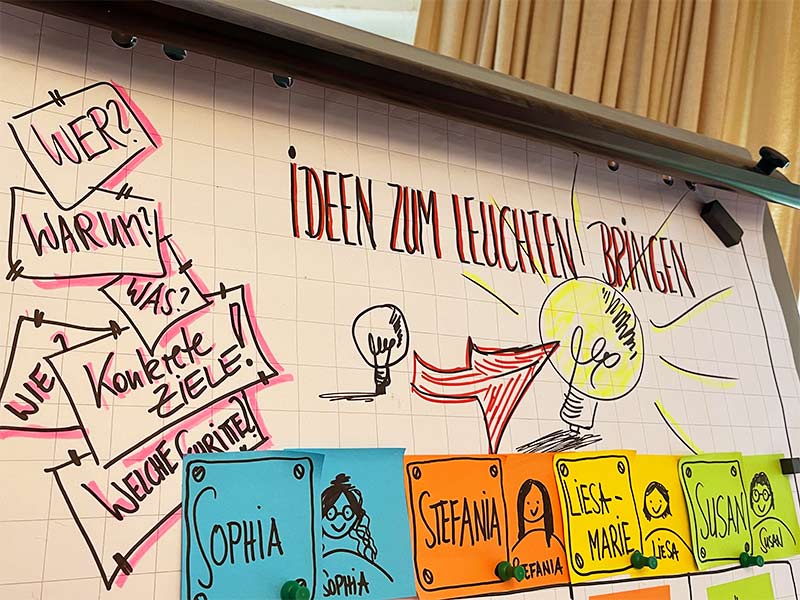 IDEEN ZUM LEUCHTEN BRINGEN
WER?
WARUM?
WAS?
WIE?
Konkrete
ZIELE!
WELCHE SCHRITTE?
SOPHIA
SOPHIA
STEFANIA
STEFANIA
LIESA-
MARIE
LIESA
SUSAN
SUSAN